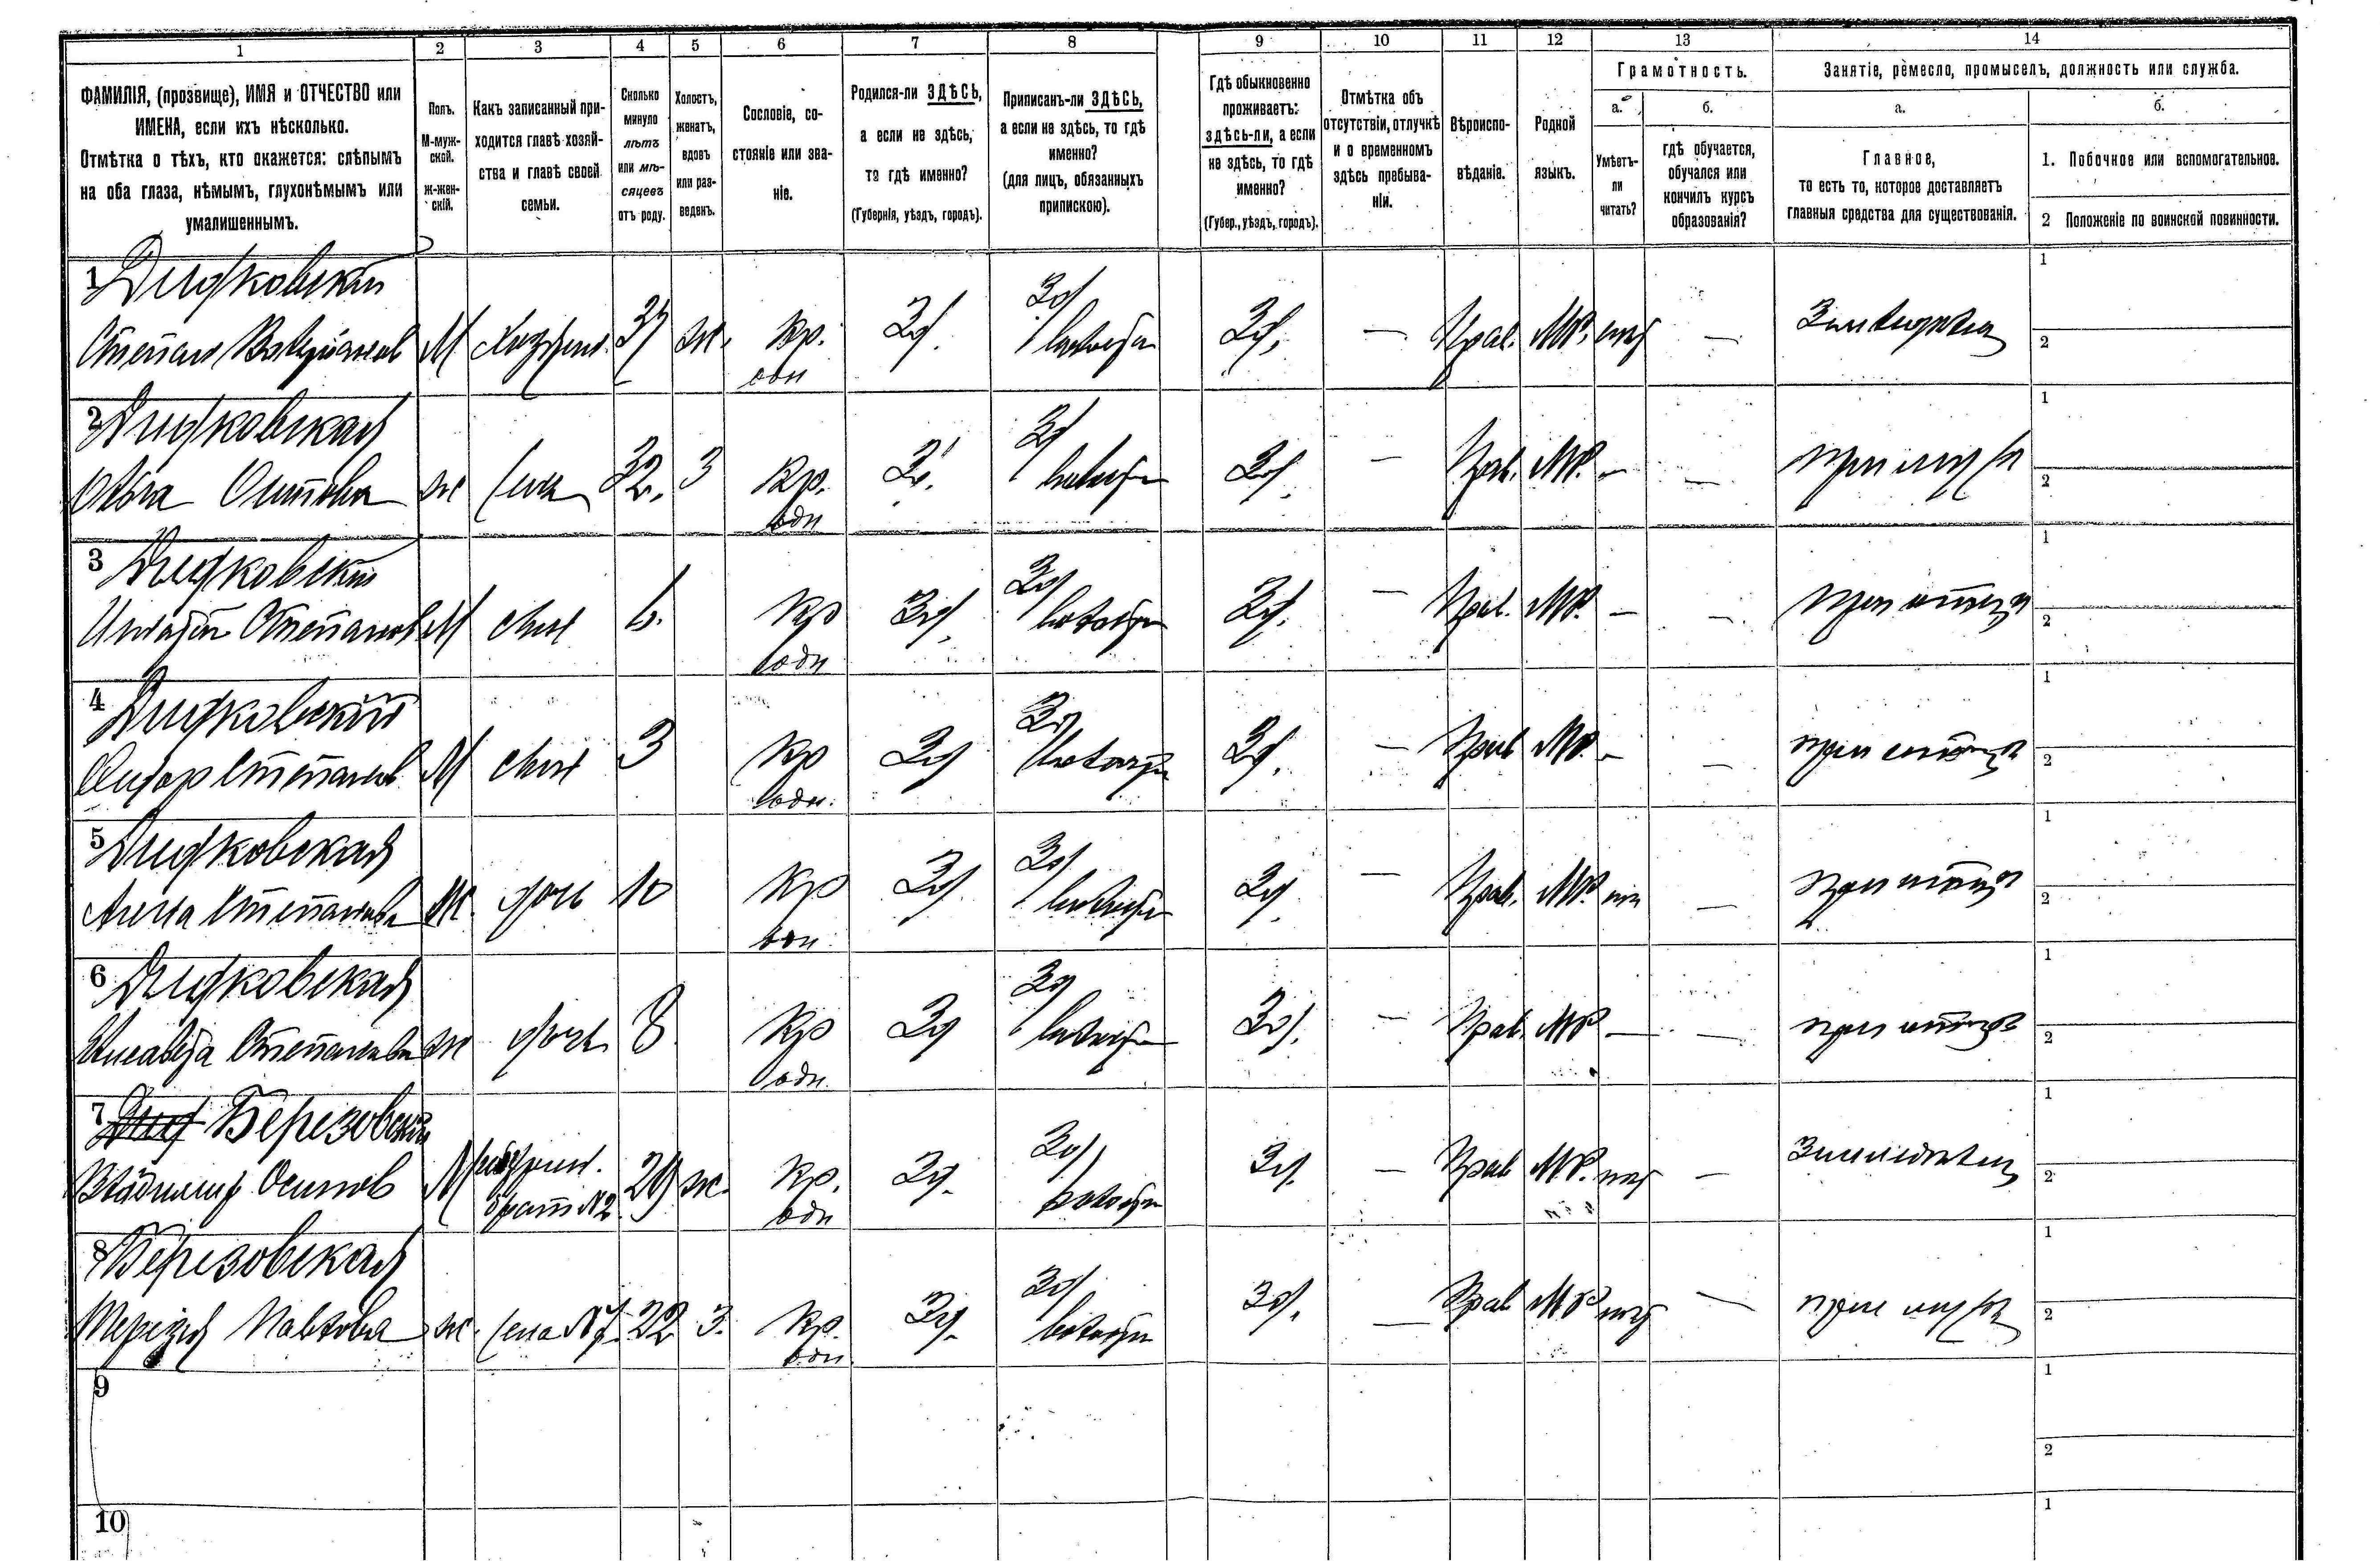 1 2 3 4 5 6 7 8 9 10 11 12 13 14
ФАМИЛІЯ, (прозвище), ИМЯ и ОТЧЕСТВО или
ИМЕНА, если ихъ нѣсколько.
Отмѣтка о тѣхъ, кто окажется: слѣпымъ
на оба глаза, нѣмымъ, глухонѣмымъ или
умалишеннымъ.
Полъ.
М-муж-
ской.
Ж-жен-
скій.
Какъ записанный при-
ходится главѣ хозяй-
ства и главѣ своей
семьи.
Сколько
минуло
лѣтъ
или мѣ-
сяцевъ
отъ роду.
Холостъ,
женатъ,
вдовъ
или раз-
веденъ.
Сословіе, со-
стояніе или зва-
ніе.
Родился-ли ЗДѢСЬ,
а если не здѣсь,
то гдѣ именно?
(Губернія, уѣздъ, городъ).
Приписанъ-ли ЗДѢСЬ,
а если не здѣсь, то гдѣ
именно?
(для лицъ, обязанныхъ
припискою).
Гдѣ обыкновенно
проживаетъ:
здѣсь-ли, а если
не здѣсь, то гдѣ
именно?
(Губер., уѣздъ, городъ).
Отмѣтка объ
отсутствіи, отлучкѣ
и о временномъ
здѣсь пребыва-
ніи.
Вѣроиспо-
вѣданіе.
Родной
языкъ.
Грамотность.
а.
Умѣетъ-
ли
читать?
б.
гдѣ обучается,
обучался или
кончилъ курсъ
образованія?
Занятіе, ремесло, промыселъ, должность или служба.
а.
Главное,
то есть то, которое доставляетъ
главныя средства для существованія.
б.
1. Побочное или вспомогательное.
2 Положеніе по воинской повинности.
1 Дидковскій
Степан М 37 ж. Кр. Зд. Зд. Зд. — Прав. МР. —
1
2
2 Дидковская
Ольга ж 32. З Кр. Зд. Зд. Зд. — Прав. МР. — — при мужѣ
1
2
3 Дидковскій
Игнатій Степанов М сын 6. Кр Зд. Зд. Зд. — Прав. МР. — — при отцѣ
1
2
4 Дидковскій
Сидор Степанов М сын 3 Кр Зд Зд Зд. — Прав МР. — — при отцѣ
1
2
5 Дидковская
Анна Степанова Ж. дочь 10 Кр Зд. Зд Зд. — Прав. МР. — при отцѣ
1
2
6 Дидковская
Елисавета Степанова ж дочь 8 Кр Зд Зд Зд. — Прав. МР — — при отцѣ
1
2
7 Березовскій
Владимир Осипов М брат №2 29 ж. Кр. Зд. Зд Зд. — Прав МР. —
1
2
8 Березовская
Терезія Павлова ж. жена №7 22 З. Кр. Зд. Зд Зд. — Прав МР — при мужѣ
1
2
9
1
2
10
1